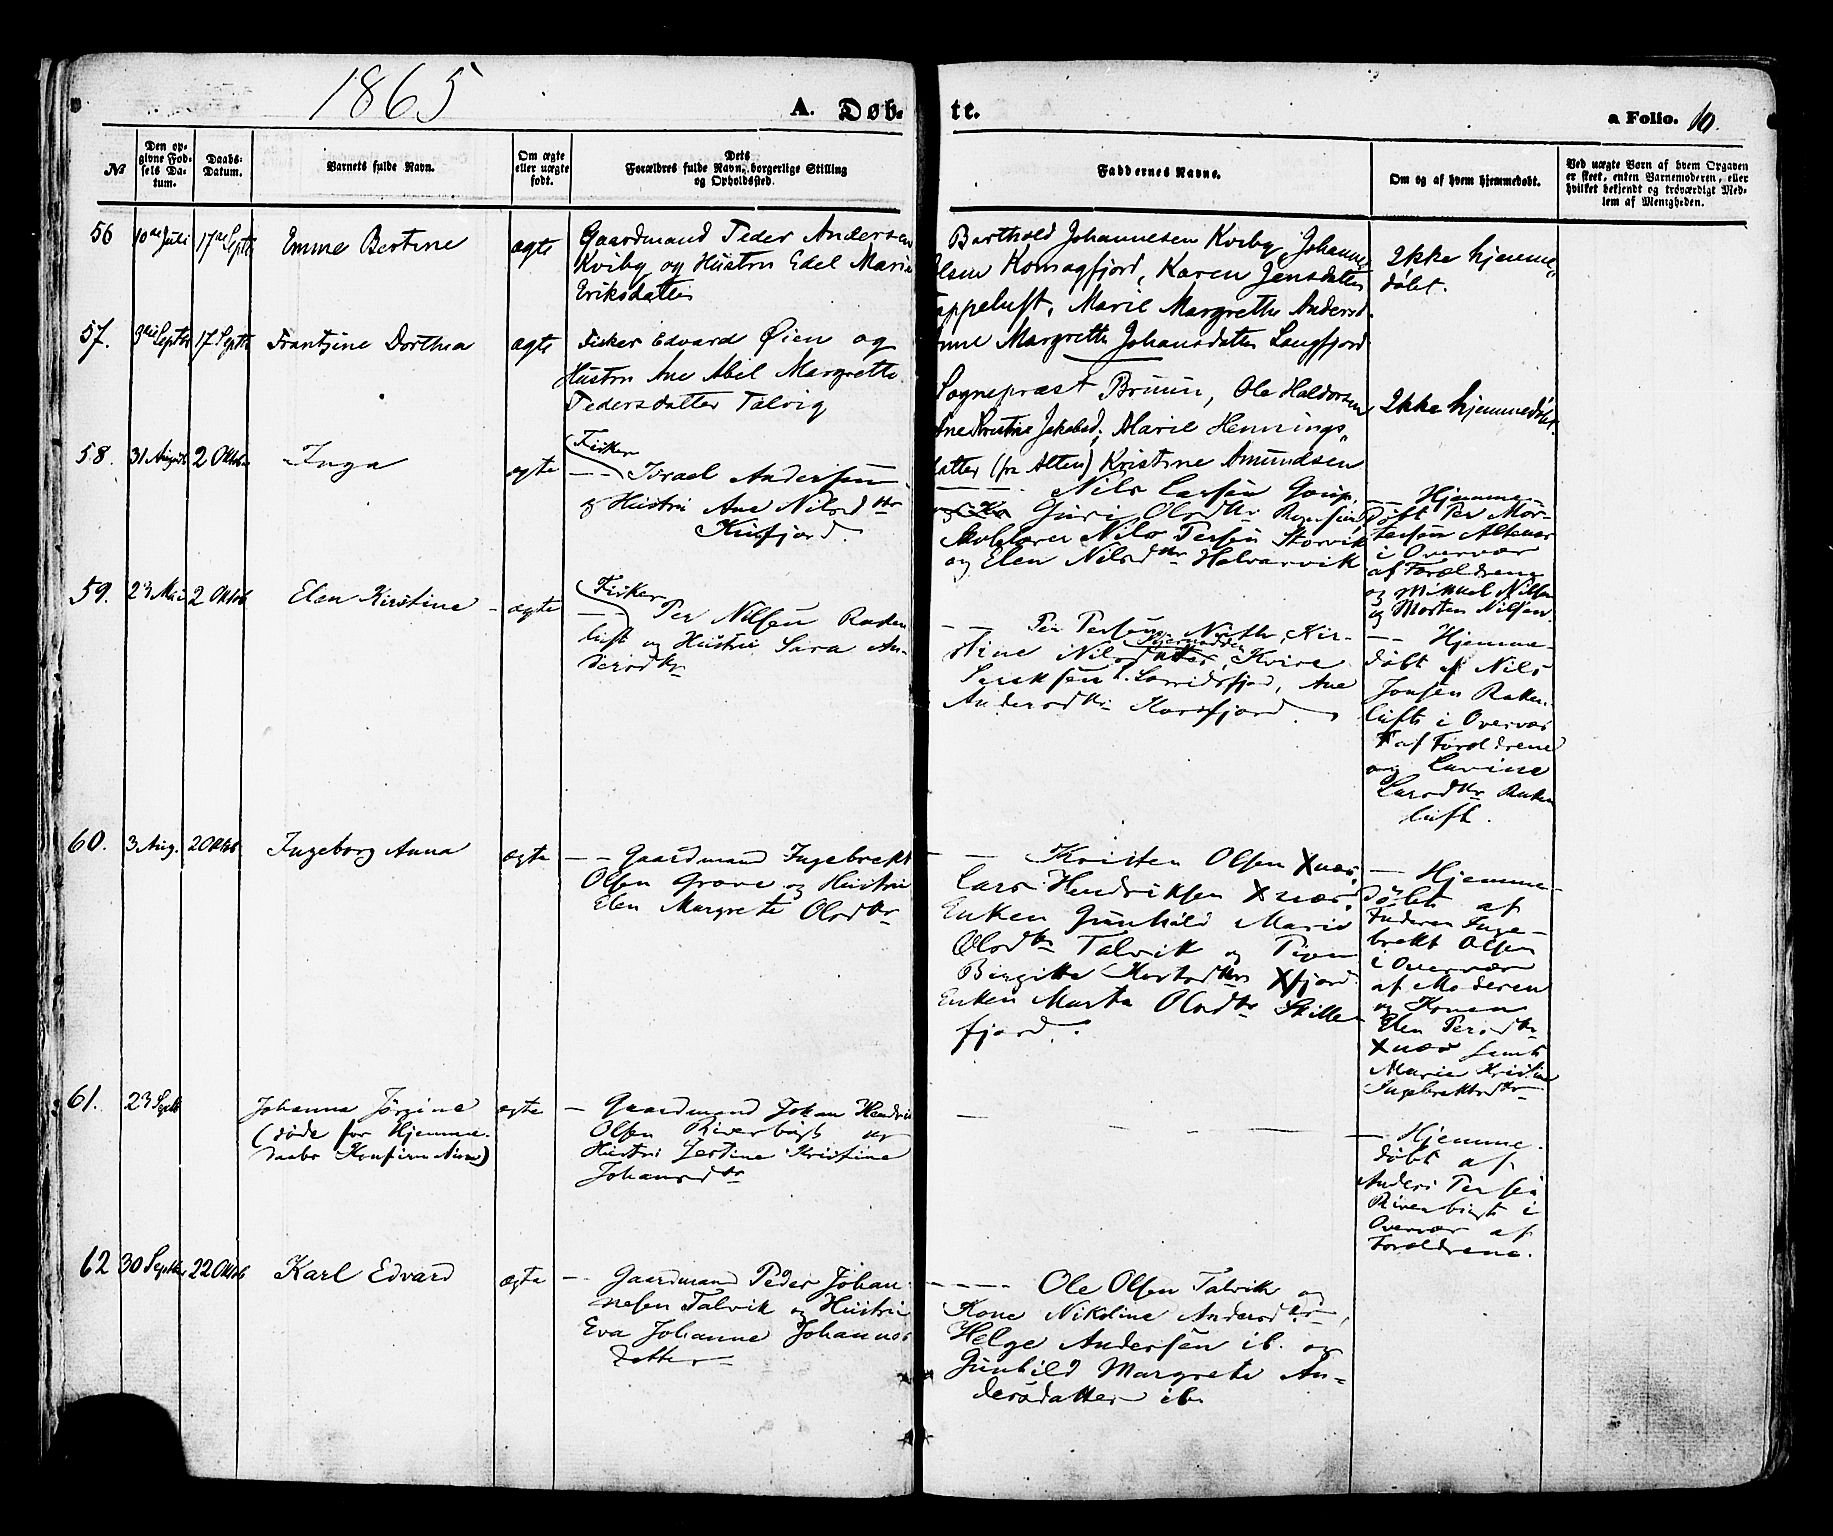 1865
A. Døb-
te.
a Folio. 10.
№
Den op-
givne Fød-
sels Da-
tum.
Daabs-
Datum.
Barnets fulde Navn.
Om ægte
eller uægte
født.
Dets
Forældres fulde Navn, borgerlige Stilling
og Opholdssted.
Faddernes Navne.
Om og af hvem hjemmedøbt.
Ved uægte Børn af hvem Opgaven
er skeet, enten Barnemoderen, eller
hvilket bekjendt og troværdigt Med-
lem af Menigheden.
56
10de Juli
17de Septb
Emme Bertine
ægte
Gaardmand Peder Andersen
Kviby og Hustru Edel Marie
Eriksdatter
Barthold Johannesen Kviby, Johannes
Olsen Komagfjord, Karen Jensdatter
Tappeluft, Marie Margrethe Andersd.
Anne Margrethe Johansdatter Langfjord
Ikke hjemme„
døbt.
57.
3die Septbr
17 Septb
Frantzine Dorthea
ægte
Fisker Edvard Øien og
Hustru Ane Abel Margrethe
Pedersdatter Talvig
Sognepræst Bruun, Ole Haldorsen
Ane Kristine Jakobsd, Marie Hennings„
datter (fra Alten) Kristine Amundsen
Ikke hjemmedøbt.
58.
31 August
2 Oktob
Inga
ægte
Fisker
— — Israel Andersen
og Hustru Ane Nilsdtr
Kusfjord.
Nils Larsen
Guri Olsdtr
Skolelærer Nils Persen Storvik
og Elen Nilsdtr Halvarvik
— — Hjemme-
døbt Per Mor-
tensen Altenes
i Overvær
af Forældrene
og Mikkel Nilsen
og Morten Nilsen.
59.
23 Mai
2 Oktob
Elen Kirstine
ægte
Fisker
— — Per Nilsen Roken
luft og Hustru Sara An-
dersdtr
— — Per Persen
Kir-
stine Nilsdatter, Kvire
Ane
Andersdtr Korsfjord.
— — Hjemme-
døbt af Nils
Jonsen Roken-
luft i Overvær
af Forældrene
og Lavine
Larsdtr Roken
luft.
60.
3 Aug.
2 Oktob
Ingeborg Anna
ægte
— — Gaardmand Ingebrekt
Olsen Grove og Hustru
Elen Margrete Olsdtr
— — Kristen Olsen Xnæs,
Lars Hendriksen Xnæs.
Enken Gunhild Marie
Olsdtr Talvik og Pigen
Birgitte Xfjord
Enken Marta Olsdtr Skille
fjord.
— Hjemme-
døbt af
Faderen Inge-
brekt Olsen
i Overvær
af Moderen
og Konen
Elen Persdtr
Xnæs samt
Marie Kristine
Ingebrektsdtr
61.
23 Septb
Johanna Jørgine
(døde før Hjemme-
daabs Konfirmation)
ægte
— Gaardmand Johan Hendrik
Olsen Riverbugt og
Hustru Zestine Kristine
Johansdtr
— — — —
— Hjemme-
døbt af
Anders Persen
Riverbugt i
Overvær af
Forældrene.
62
30 Septbr
22 Oktob
Karl Edvard
ægte
— — Gaardmand Peder Johan-
nesen Talvik og Hustru
Eva Johanne Johannes
datter
— — — — Ole Olsen Talvik og
Kone Nikoline Andersdtr,
Helge Andersen ib. og
Gunhild Margrete An-
dersdatter ib.